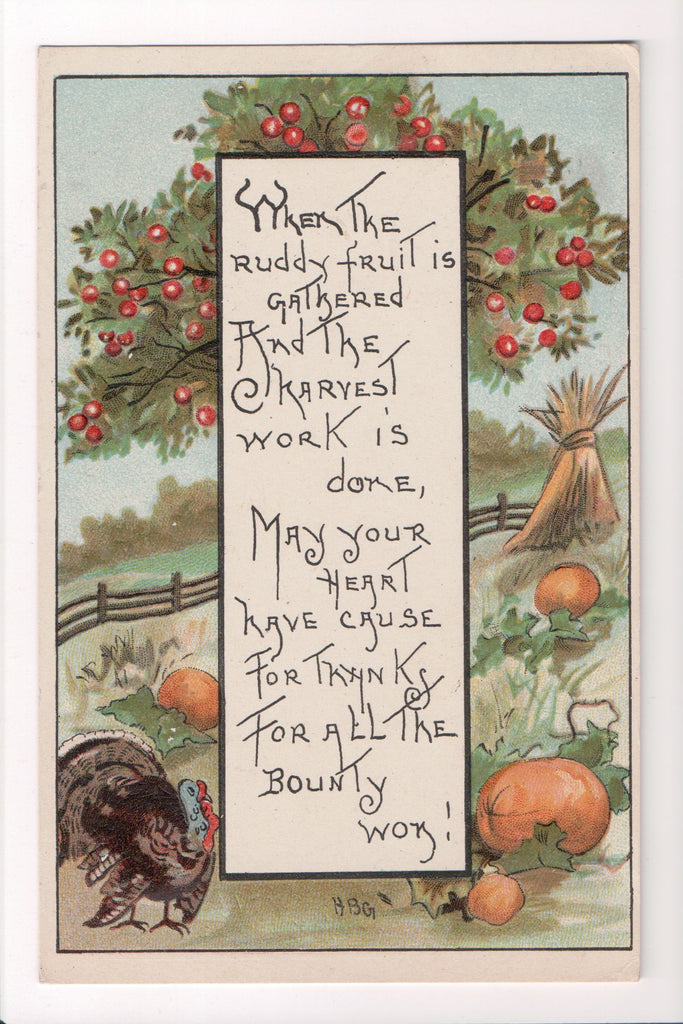 When The
ruddy fruit is
gathered
And The
harvest
work is
done,
May your
heart
have cause
For Thanks
For all The
Bounty
won!
HBG